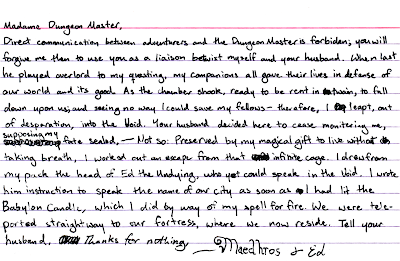 Madame Dungeon Master,
Direct communication between adventurers and the Dungeon Master is forbiden; you will
forgive me then to use you as a liaison betwixt myself and your husband. When last
he played overlord to my questing, my companions all gave their lives in defense of
our world and its good. As the chamber shook, ready to be rent in twain, to fall
down upon us, and seeing no way I could save my fellows - therefore, I leapt, out
of desparation, into the Void. Your husband decided here to cease monitoring me,
supposing my fate sealed, — Not so: Preserved by my magical gift to live without
taking breath, I worked out an escape from that infinite cage. I drew from
my pack the head of Ed the Undying, who yet could speak in the Void. I wrote
him instruction to speak the name of our city as soon as I had lit the
Babylon Candle, which I did by way of my spell for fire. We were tele-
ported straightway to our fortress, where we now reside. Tell your
husband, Thanks for nothing — Maedhros & Ed